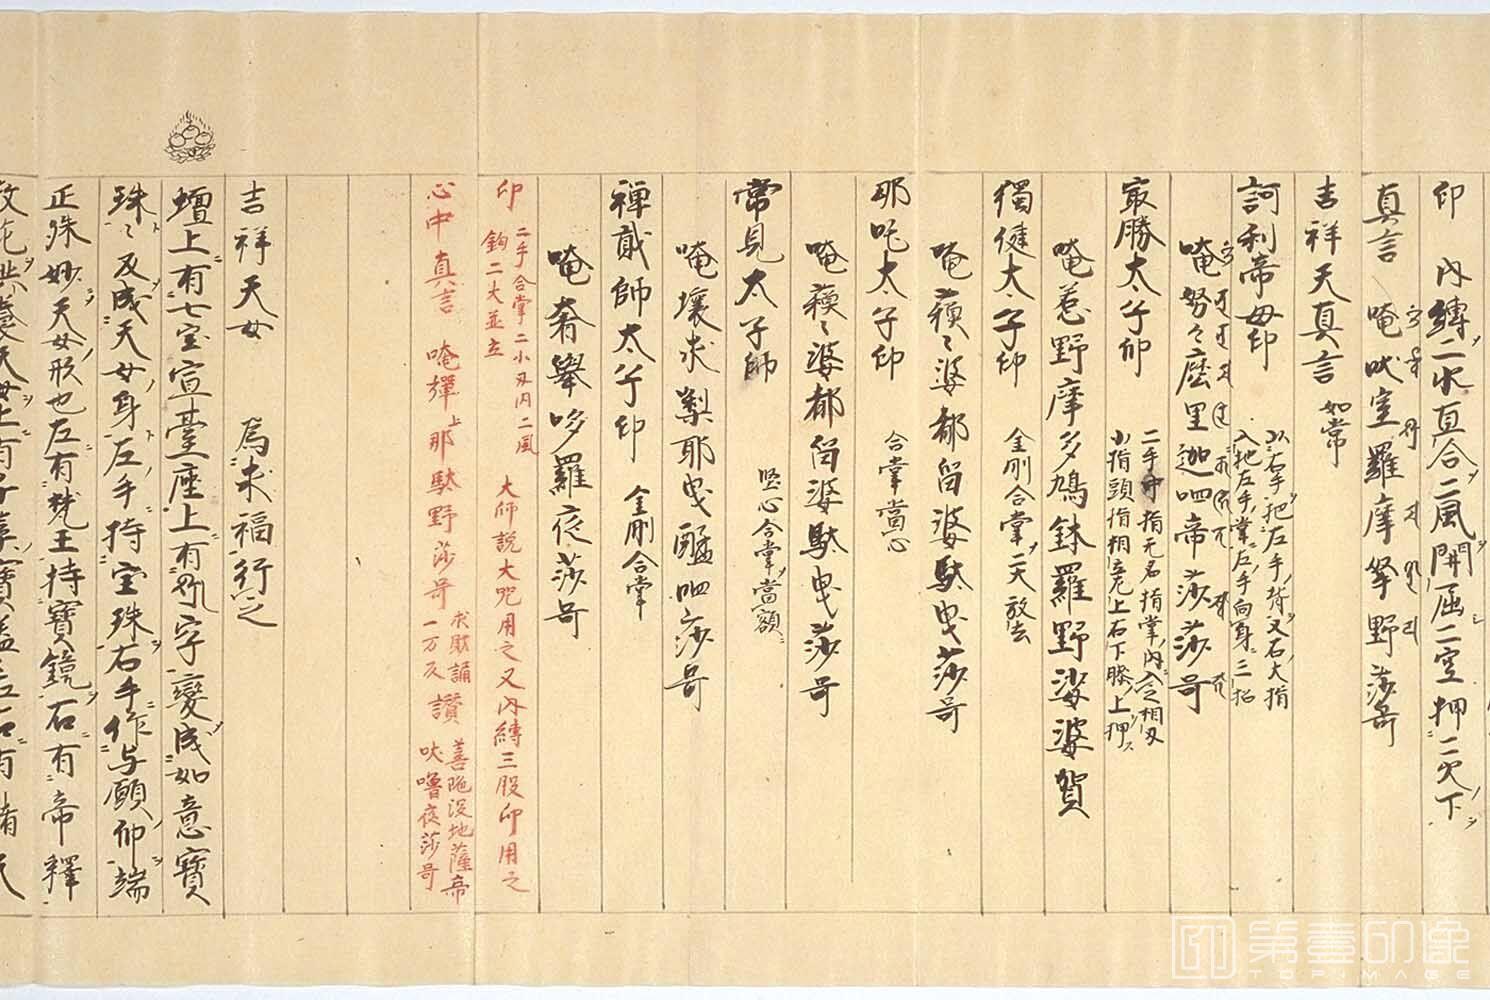 印 内縛二水直合二風開屈二空押二火下
真言 唵吠室羅摩拏野莎哥
吉祥天真言 如常
訶利帝母印 以右手把左手背又右大指
入把左手掌左手向身三招
唵努々麼里迦呬帝莎莎哥
最勝太子印 二手中指无名指掌内入之相叉
小指頭指相立左上右下膝上押
唵惹野摩多鳩鉢羅野娑婆賀
獨健太子印 金剛合掌二大放去
唵蘋々婆都留婆馱曳莎哥
那吒太子印 合掌當心
唵蘋々婆都留婆馱曳莎哥
常見太子師 堅心合掌當額
唵壤求梨耶曳醯呬莎哥
禅貮師太子印 金剛合掌
唵奢舉哆羅夜莎哥
印 二手合掌二小叉内二風
鉤二大並立 大師説大咒用之又内縛三股印用之
心中真言 唵禪上那馱野莎哥 求財誦
一万反 讃 菩陁没地薩帝
吠嚕夜莎哥
吉祥天女 為求福行之
壇上有七宝宣臺座上有字變成如意寶
珠々反成天女身左手持宝珠右手作与願印端
正殊妙天女形也左有梵王持寶鏡右有帝釋
TOPIMAGE